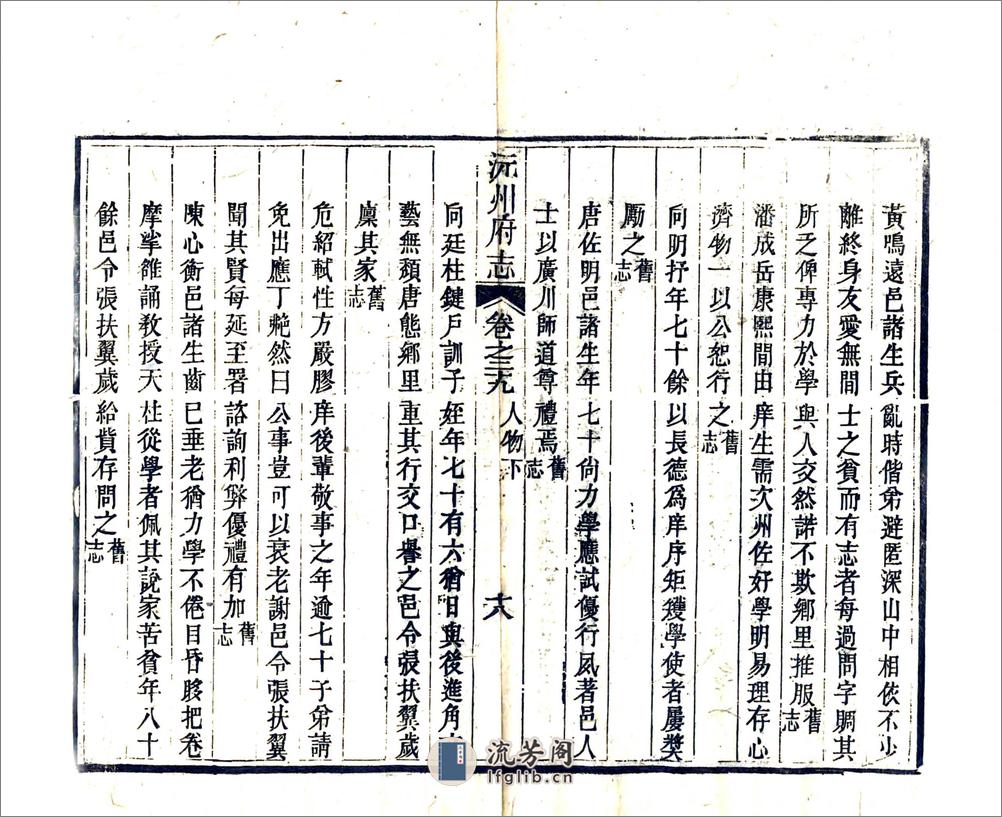 黃鳴遠邑諸生兵亂時偕弟避匿深山中相依不少
離終身友愛無間士之貧而有志者每過問字賙其
所乏俾專力於學與人交然諾不欺鄉里推服舊志
潘成岳康熙間由庠生需次州佐好學明易理存心
濟物一以公恕行之舊志
向明抒年七十餘以長德爲庠序矩矱學使者屢獎
勵之舊志
唐佐明邑諸生年七十尙力學應試優行夙著邑人
士以廣川師道尊禮焉舊志
沅州府志 卷之三十九 人物下 十八
向廷柱鍵戶訓子姪年七十有六猶日與後進角
藝無頹唐態鄉里重其行交口譽之邑令張扶翼歲
廩其家舊志
危紹軾性方嚴膠庠後輩敬事之年逾七十子弟請
免出應丁艴然曰公事豈可以衰老謝邑令張扶翼
聞其賢每延至署諮詢利弊優禮有加舊志
陳心衡邑諸生齒巳垂老猶力學不倦目昏眵把卷
摩挲雒誦敎授天柱從學者佩其說家苦貧年八十
餘邑令張扶翼歲給貲存問之舊志
流芳阁
lfglib.cn